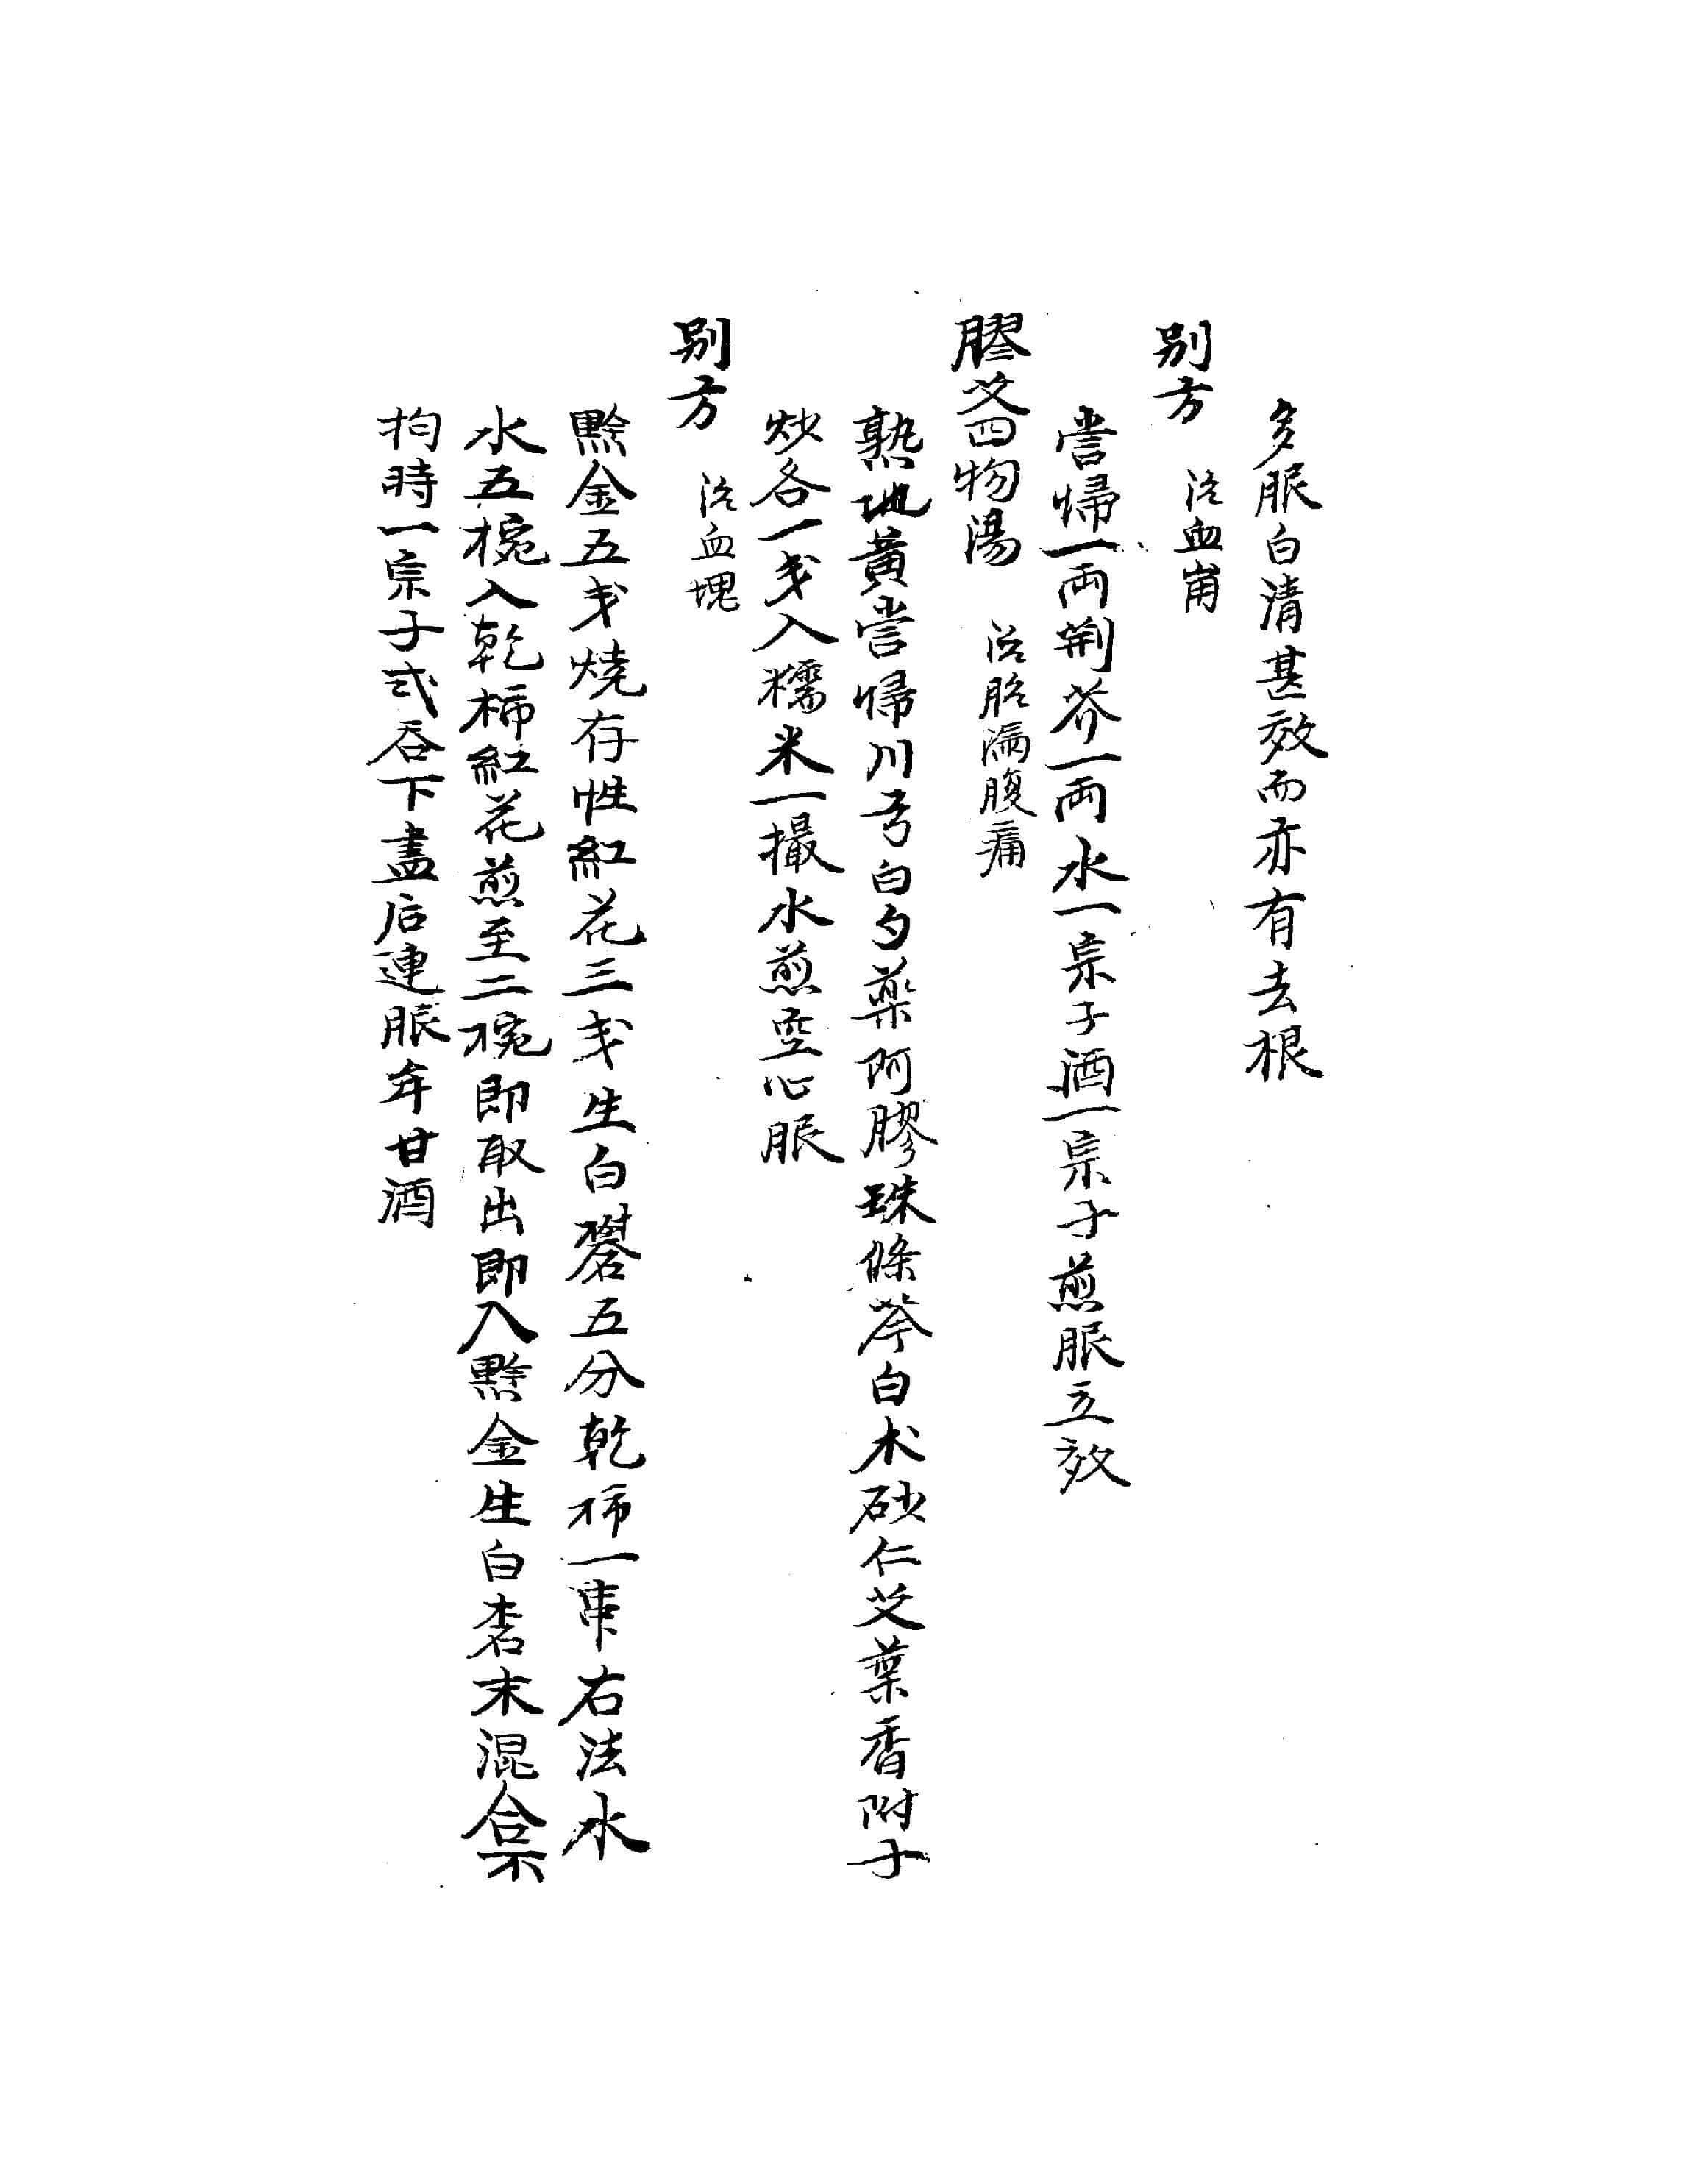 多服白清甚效而亦有去根
別方 治血崩
當歸一両荆芥一両水一宗子酒一宗子煎服立效
膠艾四物湯 治胎漏腹痛
熟地黃當歸川芎白勺藥阿膠珠條芩白朮砂仁艾葉香附子
炒各一戔入糯米一撮水煎空心服
別方 治血塊
黔金五戔燒存性紅花三戔生白礬五分乾柿一串右法水
水五椀入乾柿紅花煎至二椀即取出即入黔金生白末混合不
拘時一宗子式吞下盡后連服年甘酒